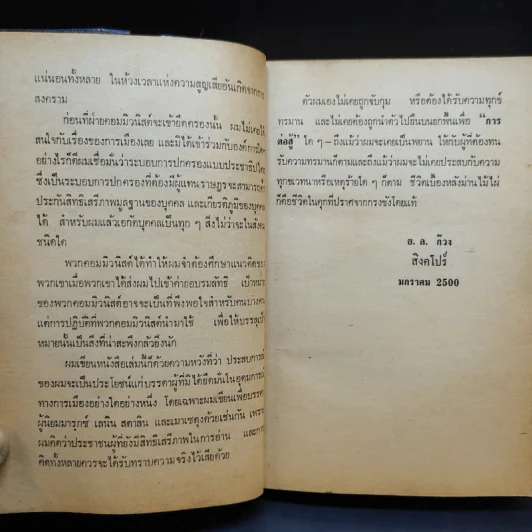 แน่นอนทั้งหลาย ในห้วงเวลาแห่งความสูญเสียอันเกิดจาก
สงคราม
ก่อนที่ฝ่ายคอมมิวนิสต์จะเข้ายึดครองนั้น ผมไม่เคยให้
สนใจกับเรื่องของการเมืองเลย และมิได้เข้าร่วมกับองค์การใด
อย่างไรก็ดีผมเชื่อมั่นว่าระบอบการปกครองแบบประชาธิปไตย
ซึ่งเป็นระบอบการปกครองที่ต้องมีผู้แทนราษฎรจะสามารถ
ประกันสิทธิเสรีภาพมูลฐานของบุคคล และเกียรติภูมิของบุคคล
ได้ สำหรับผมแล้วเอกัตบุคคลเป็นทุก ๆ สิ่งไม่ว่าจะในสังคม
ชนิดใด
พวกคอมมิวนิสต์ได้ทำให้ผมจำต้องศึกษาแนวคิดของ
พวกเขาเมื่อพวกเขาได้ส่งผมไปเข้าค่ายอบรมลัทธิ เป้าหมาย
ของพวกคอมมิวนิสต์อาจจะเป็นที่พึงพอใจสำหรับคนบางคน
แต่การปฏิบัติที่พวกคอมมิวนิสต์นำมาใช้ เพื่อให้บรรลุเป้า
หมายนั้นเป็นสิ่งที่น่าสะพึงกลัวยิ่งนัก
ผมเขียนหนังสือเล่มนี้ก็ด้วยความหวังที่ว่า ประสบการณ์
ของผมจะเป็นประโยชน์แก่บรรดาผู้ที่มิได้ยึดมั่นในอุดมการณ์
ทางการเมืองอย่างใดอย่างหนึ่ง โดยเฉพาะผมเขียนเพื่อบรรดา
ผู้นิยมมาร์กซ์ เลนิน สตาลิน และเมาเซตุงด้วยเช่นกัน เพราะ
ผมคิดว่าประชาชนผู้ที่ยังมีสิทธิเสรีภาพในการอ่าน และการ
คิดทั้งหลายควรจะได้รับทราบความจริงไว้เสียด้วย
ตัวผมเองไม่เคยถูกจับกุม หรือต้องได้รับความทุกข์
ทรมาน และไม่เคยต้องถูกนำตัวไปยืนบนยกพื้นเพื่อ "การ
ต่อสู้" ใด ๆ – ถึงแม้ว่าผมจะเคยเป็นพยาน ให้กับผู้ที่ต้องทน
รับความทรมานก็ตามและถึงแม้ว่าผมจะไม่เคยประสบกับความ
ทุกขเวทนาหรือเหตุร้ายใด ๆ ก็ตาม ชีวิตเบื้องหลังม่านไม้ไผ่
ก็คือชีวิตในคุกที่ปราศจากกรงขังโดยแท้
ย. ล. ก๊วง
สิงคโปร์
มกราคม 2500